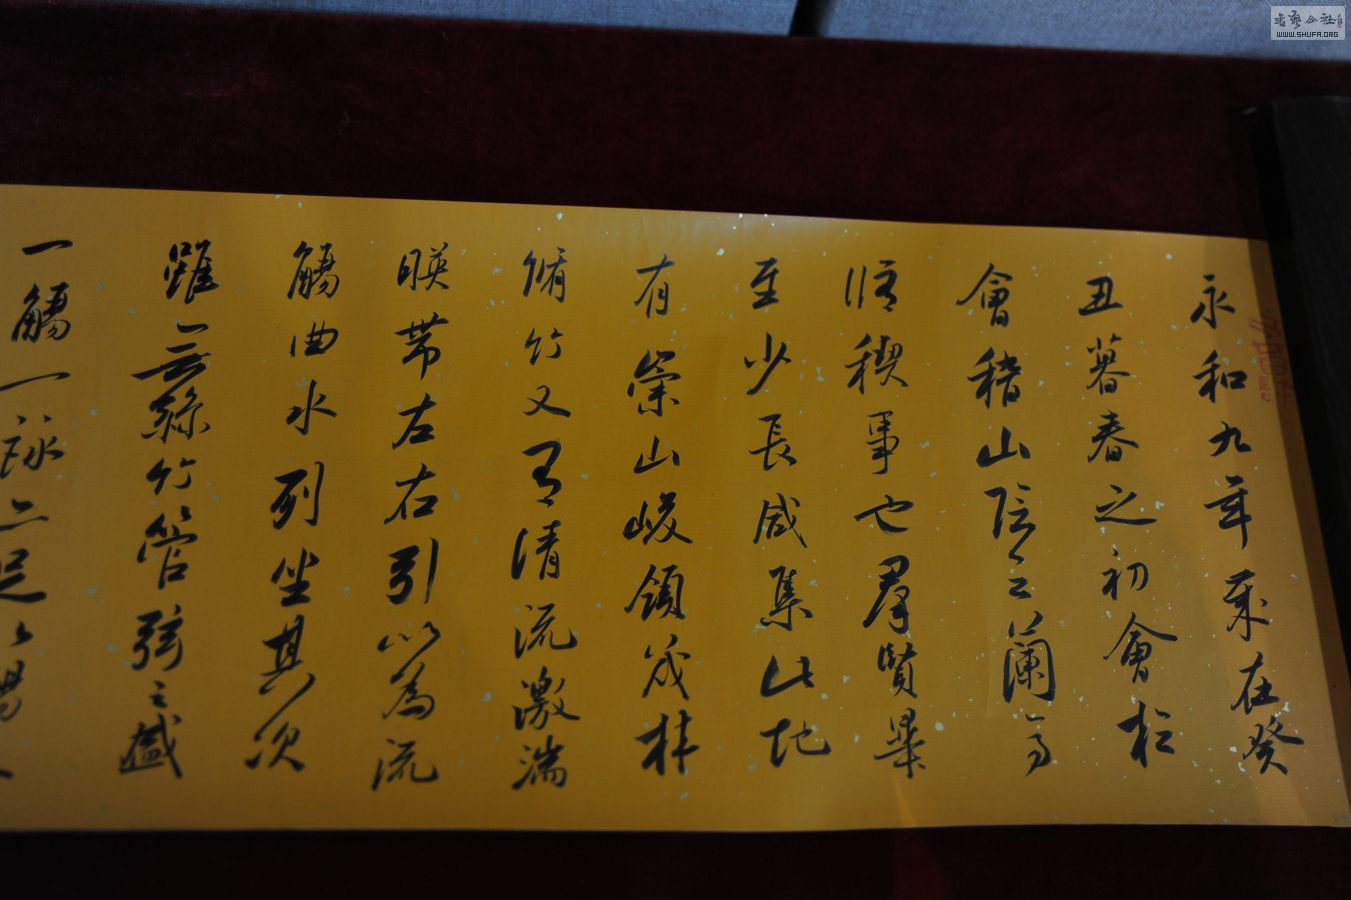 永和九年歲在癸
丑暮春之初會於
會稽山陰之蘭亭
脩稧事也羣賢畢
至少長咸集此地
有崇山峻領茂林
脩竹又有清流激湍
暎帶左右引以為流
觴曲水列坐其次
雖無絲竹管弦之盛
一觴一詠亦足以暢
书艺公社
WWW.SHUFA.ORG